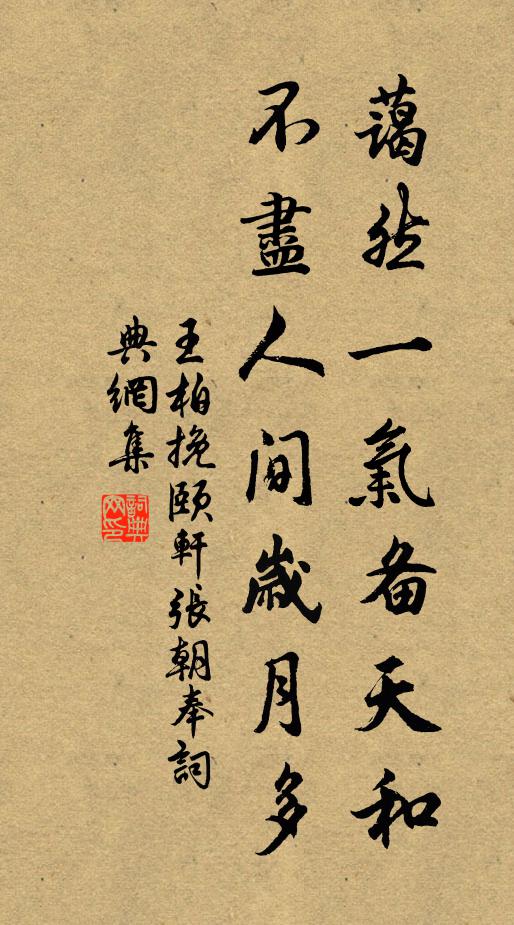 藹然一氣备天和
不盡人間歲月多
王柏挽頤軒張朝奉詞
典網集
詞典
网印